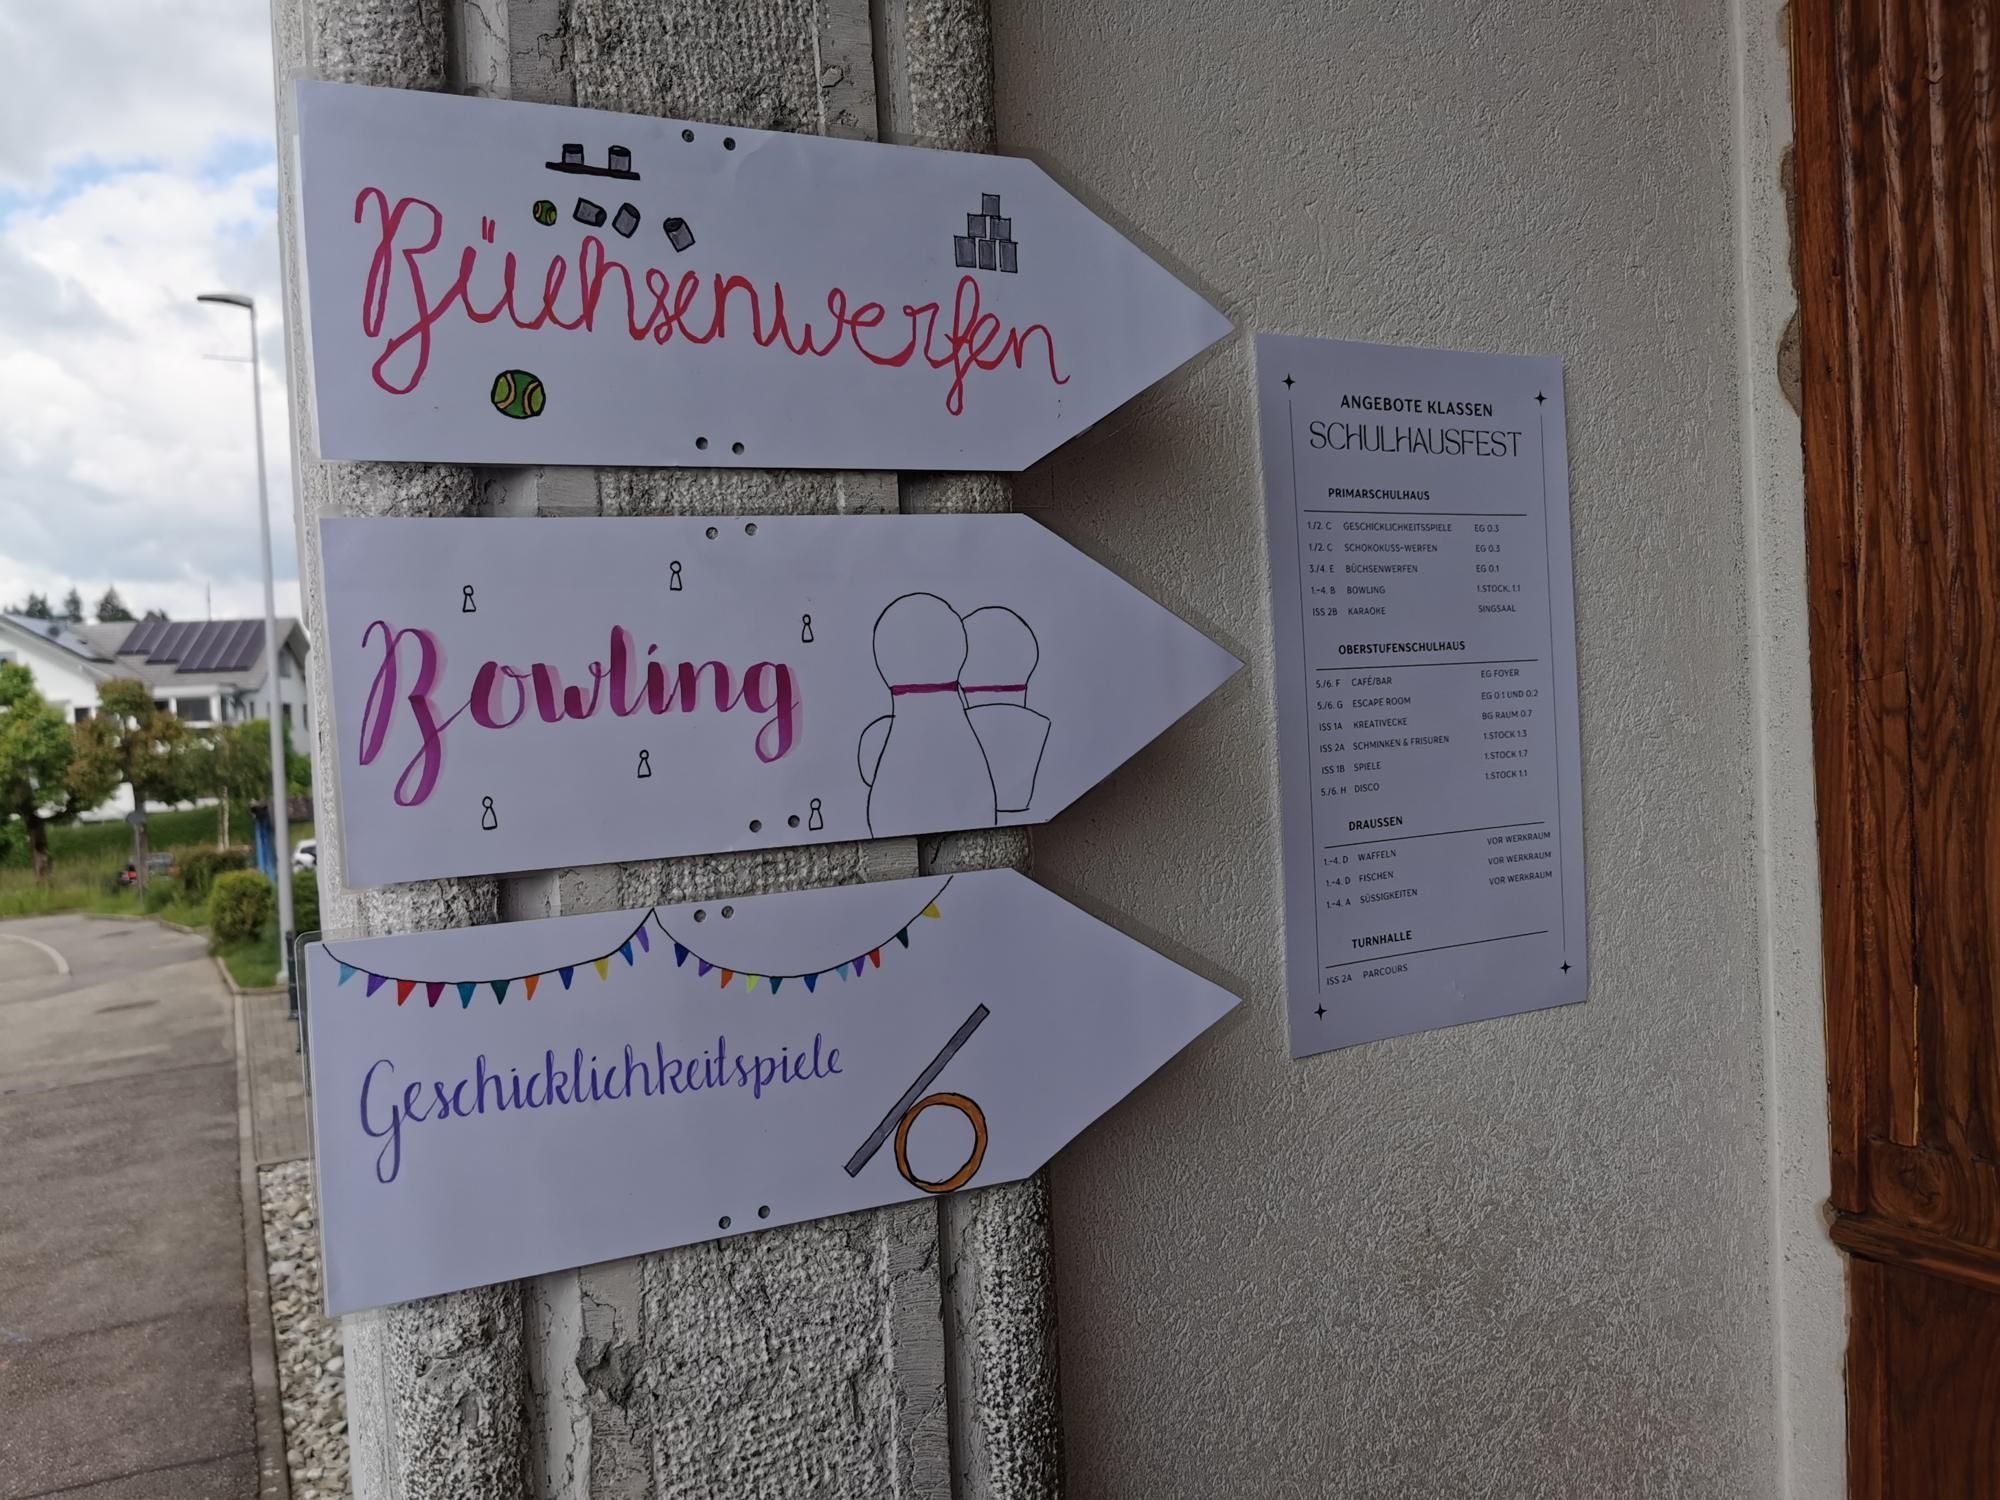 Büchsenwerfen
Bowling
Geschicklichkeitspiele
ANGEBOTE KLASSEN
SCHULHAUSFEST
PRIMARSCHULHAUS
1./2. C GESCHICKLICHKEITSSPIELE EG 0.3
1./2. C SCHOKOKUSS-WERFEN EG 0.3
3./4. E BÜCHSENWERFEN EG 0.1
1.-4. B BOWLING 1.STOCK, 1.1
ISS 2B KARAOKE SINGSAAL
OBERSTUFENSCHULHAUS
5./6. F CAFÉ/BAR EG FOYER
5./6. G ESCAPE ROOM EG 0.1 UND 0.2
ISS 1A KREATIVECKE BG RAUM 0.7
ISS 2A SCHMINKEN & FRISUREN 1.STOCK 1.3
ISS 1B SPIELE 1.STOCK 1.7
5./6. H DISCO 1.STOCK 1.1
DRAUSSEN
1.-4. D WAFFELN VOR WERKRAUM
1.-4. D FISCHEN VOR WERKRAUM
1.-4. A SÜSSIGKEITEN VOR WERKRAUM
TURNHALLE
ISS 2A PARCOURS